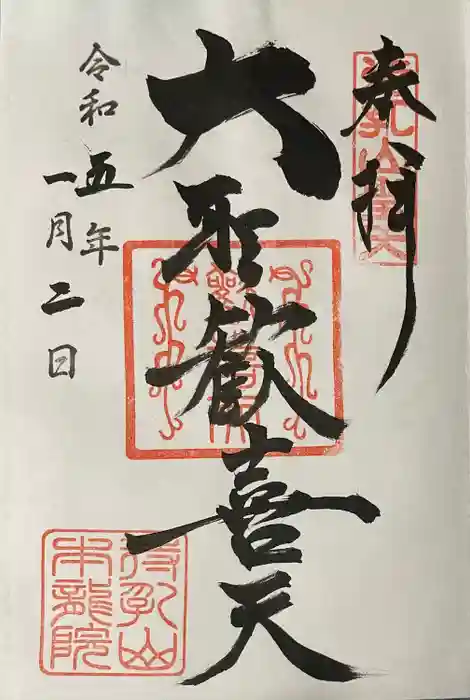 奉拝
大聖歓喜天
令和五年
一月二日
待乳山
本龍院